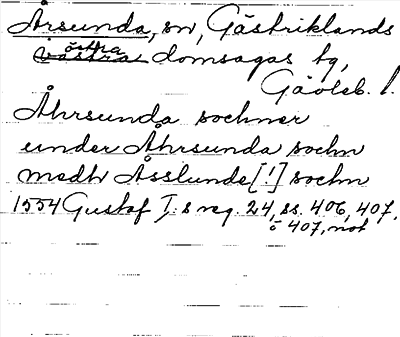 Årsunda, sn, Gästriklands
östra
västra domsagas tg,
Gävleb. l.
Åhrsunda sochner
under Åhrsunda sochn
medh Åsslunde [!] sochn
1554 Gustaf I:s reg. 24, ss. 406, 407,
o 407, not